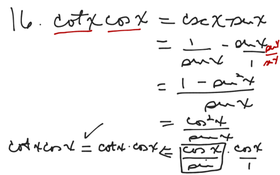 16. cot x cos x = csc x - sin x
= 1/sin x - sin x/1 sin x/sin x
= 1 - sin²x / sin x
= cos²x / sin x
cot x cos x ✓= cot x · cos x = cos x/sin · cos x/1